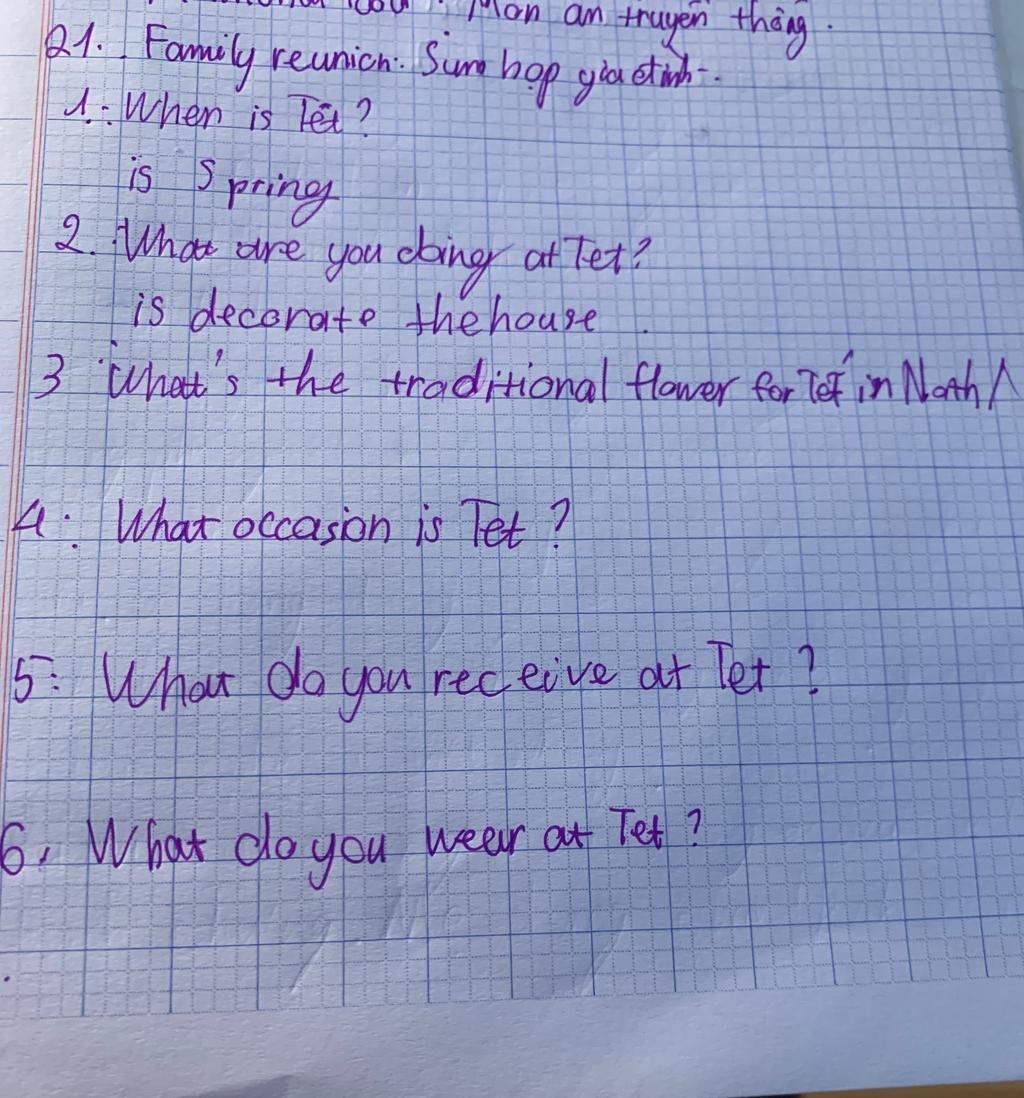 Món ăn truyền thống.
21. Family reunion: Sum họp gia đình.
1. When is Tết?
is Spring
2. What are you doing at Tet?
is decorate the house.
3 What's the traditional flower for Tết in North
4. What occasion is Tet?
5: What do you receive at Tet?
6. What do you wear at Tet?